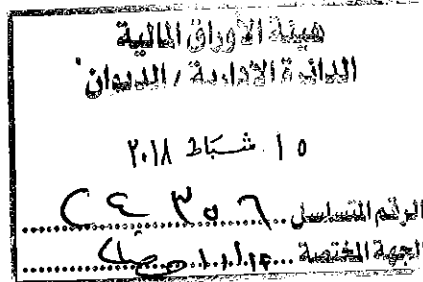 هيئة الأوراق المالية
الدائرة الادارية / الديوان
١٥ شباط ٢٠١٨
الرقم المتسلسل
الجهة المختصة